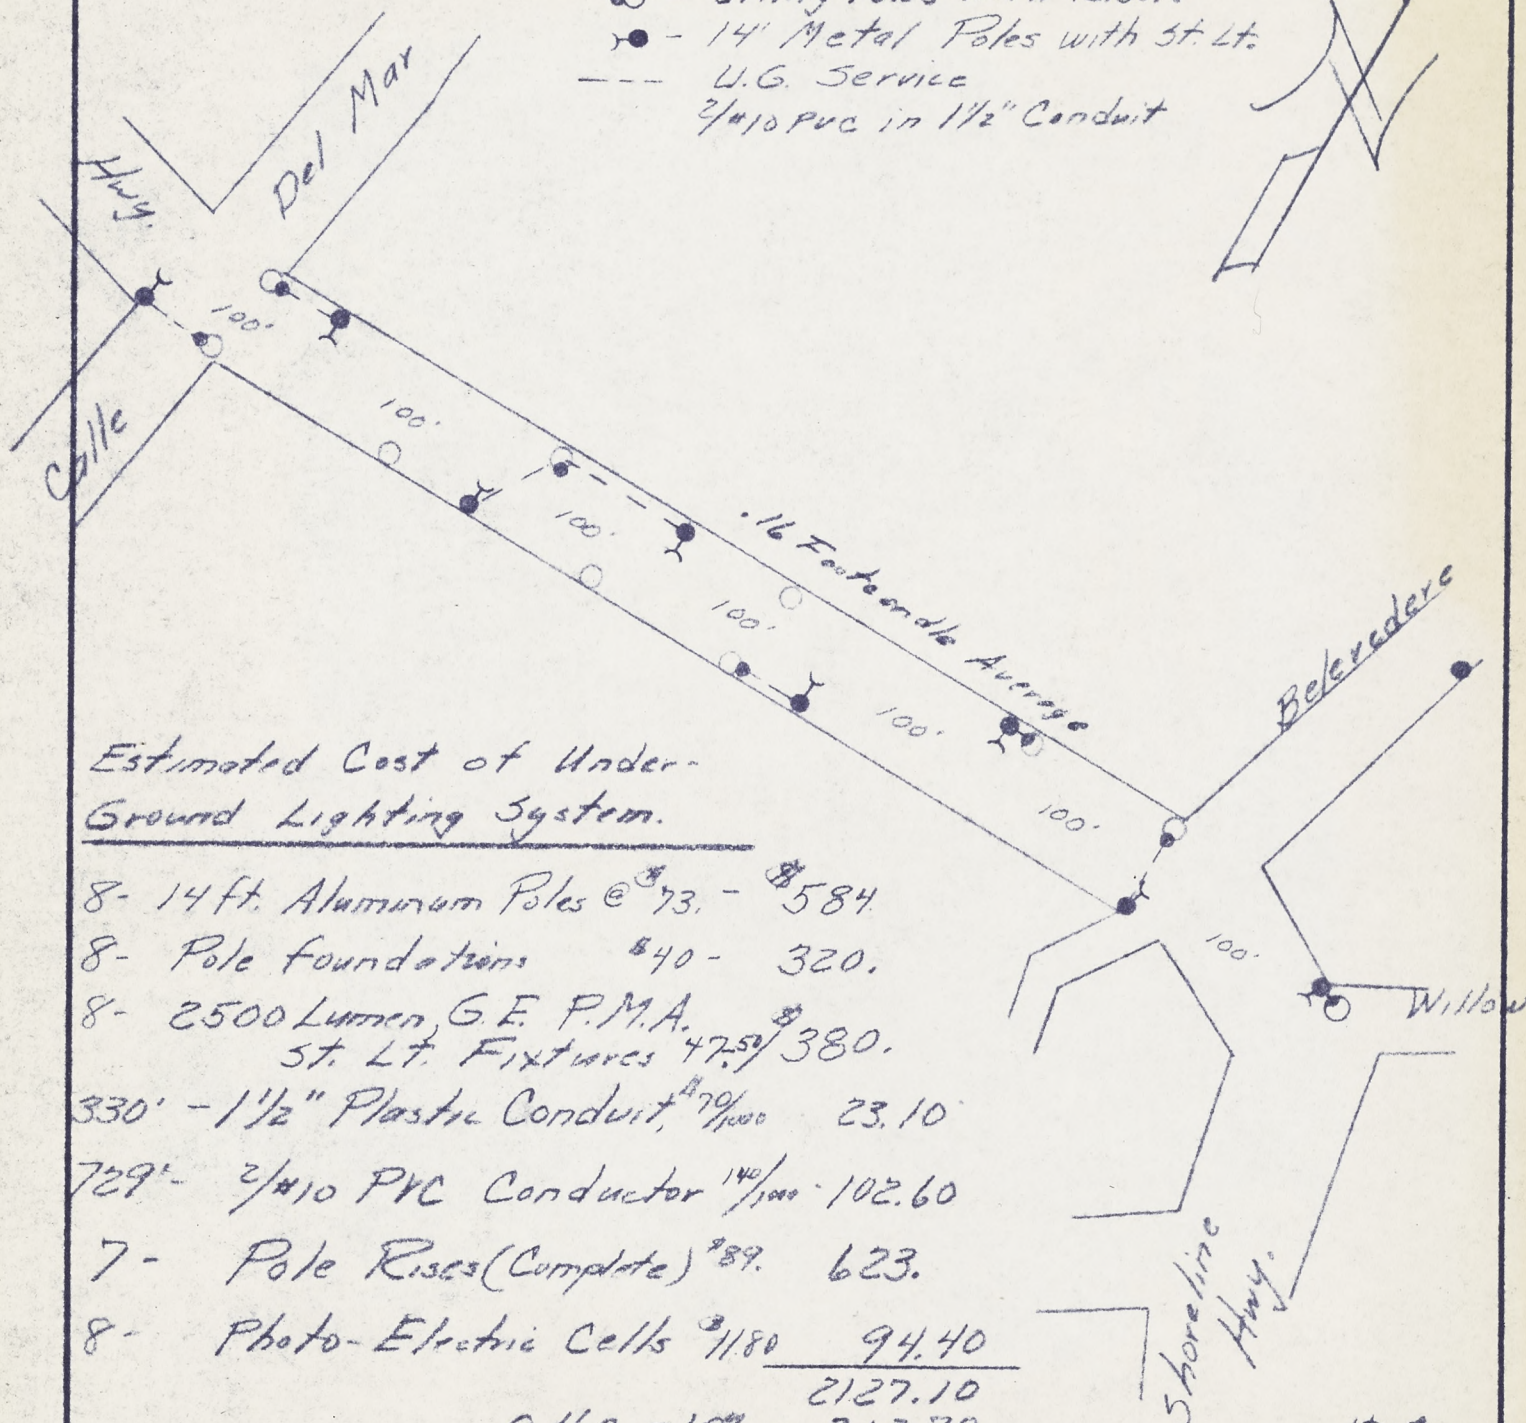 14' Metal Poles with St. Lt.
--- U.G. Service
2/#10 PVC in 1½" Conduit
Hwy.
Del Mar
100'
Calle
100'
100'
.16 Footcandle Average
100'
100'
Belevedere
100'
100'
Willow
Shoreline
Hwy.
Estimated Cost of Under-
Ground Lighting System.
8- 14 ft. Aluminum Poles @ $73. - $584.
8- Pole foundations $40 - 320.
8- 2500 Lumen, G.E. P.M.A.
St. Lt. Fixtures 47.50/ $380.
330' - 1½" Plastic Conduit, $70/1000 23.10
729'- 2/#10 PVC Conductor 140/1000 - 102.60
7- Pole Rises (Complete) $89. 623.
8- Photo-Electric Cells $11.80 94.40
2127.10